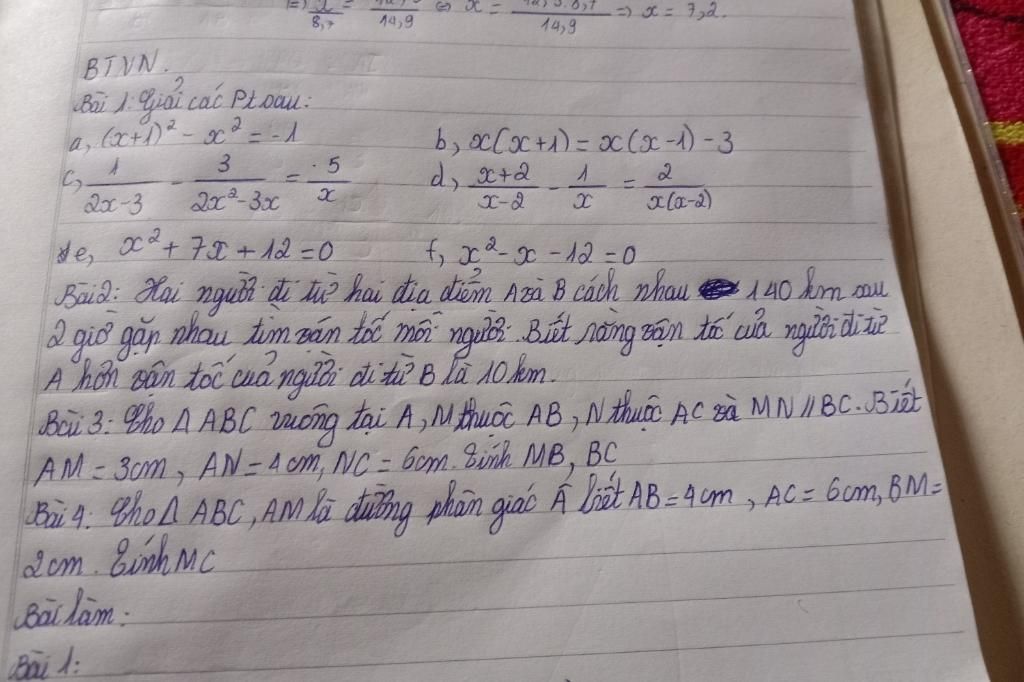 8,7 14,9 ⇔ x = 14,9 ⇒ x = 7,2.
BTVN.
Bài 1: Giải các Pt sau:
a, (x+1)² - x² = -1 b, x(x+1) = x(x-1) - 3
c, 1/(2x-3) - 3/(2x²-3x) = 5/x d, (x+2)/(x-2) - 1/x = 2/(x(x-2))
e, x² + 7x + 12 = 0 f, x² - x - 12 = 0
Bài 2: Hai người đi từ hai địa điểm A và B cách nhau 140 km sau
2 giờ gặp nhau tìm vận tốc mỗi người. Biết rằng vận tốc của người đi từ
A hơn vận tốc của người đi từ B là 10 km.
Bài 3: Cho Δ ABC vuông tại A, M thuộc AB, N thuộc AC và MN // BC. Biết
AM = 3cm, AN = 4cm, NC = 6cm. Tính MB, BC
Bài 4: Cho Δ ABC, AM là đường phân giác Â biết AB = 4cm, AC = 6cm, BM =
2cm. Tính MC
Bài làm:
Bài 1: